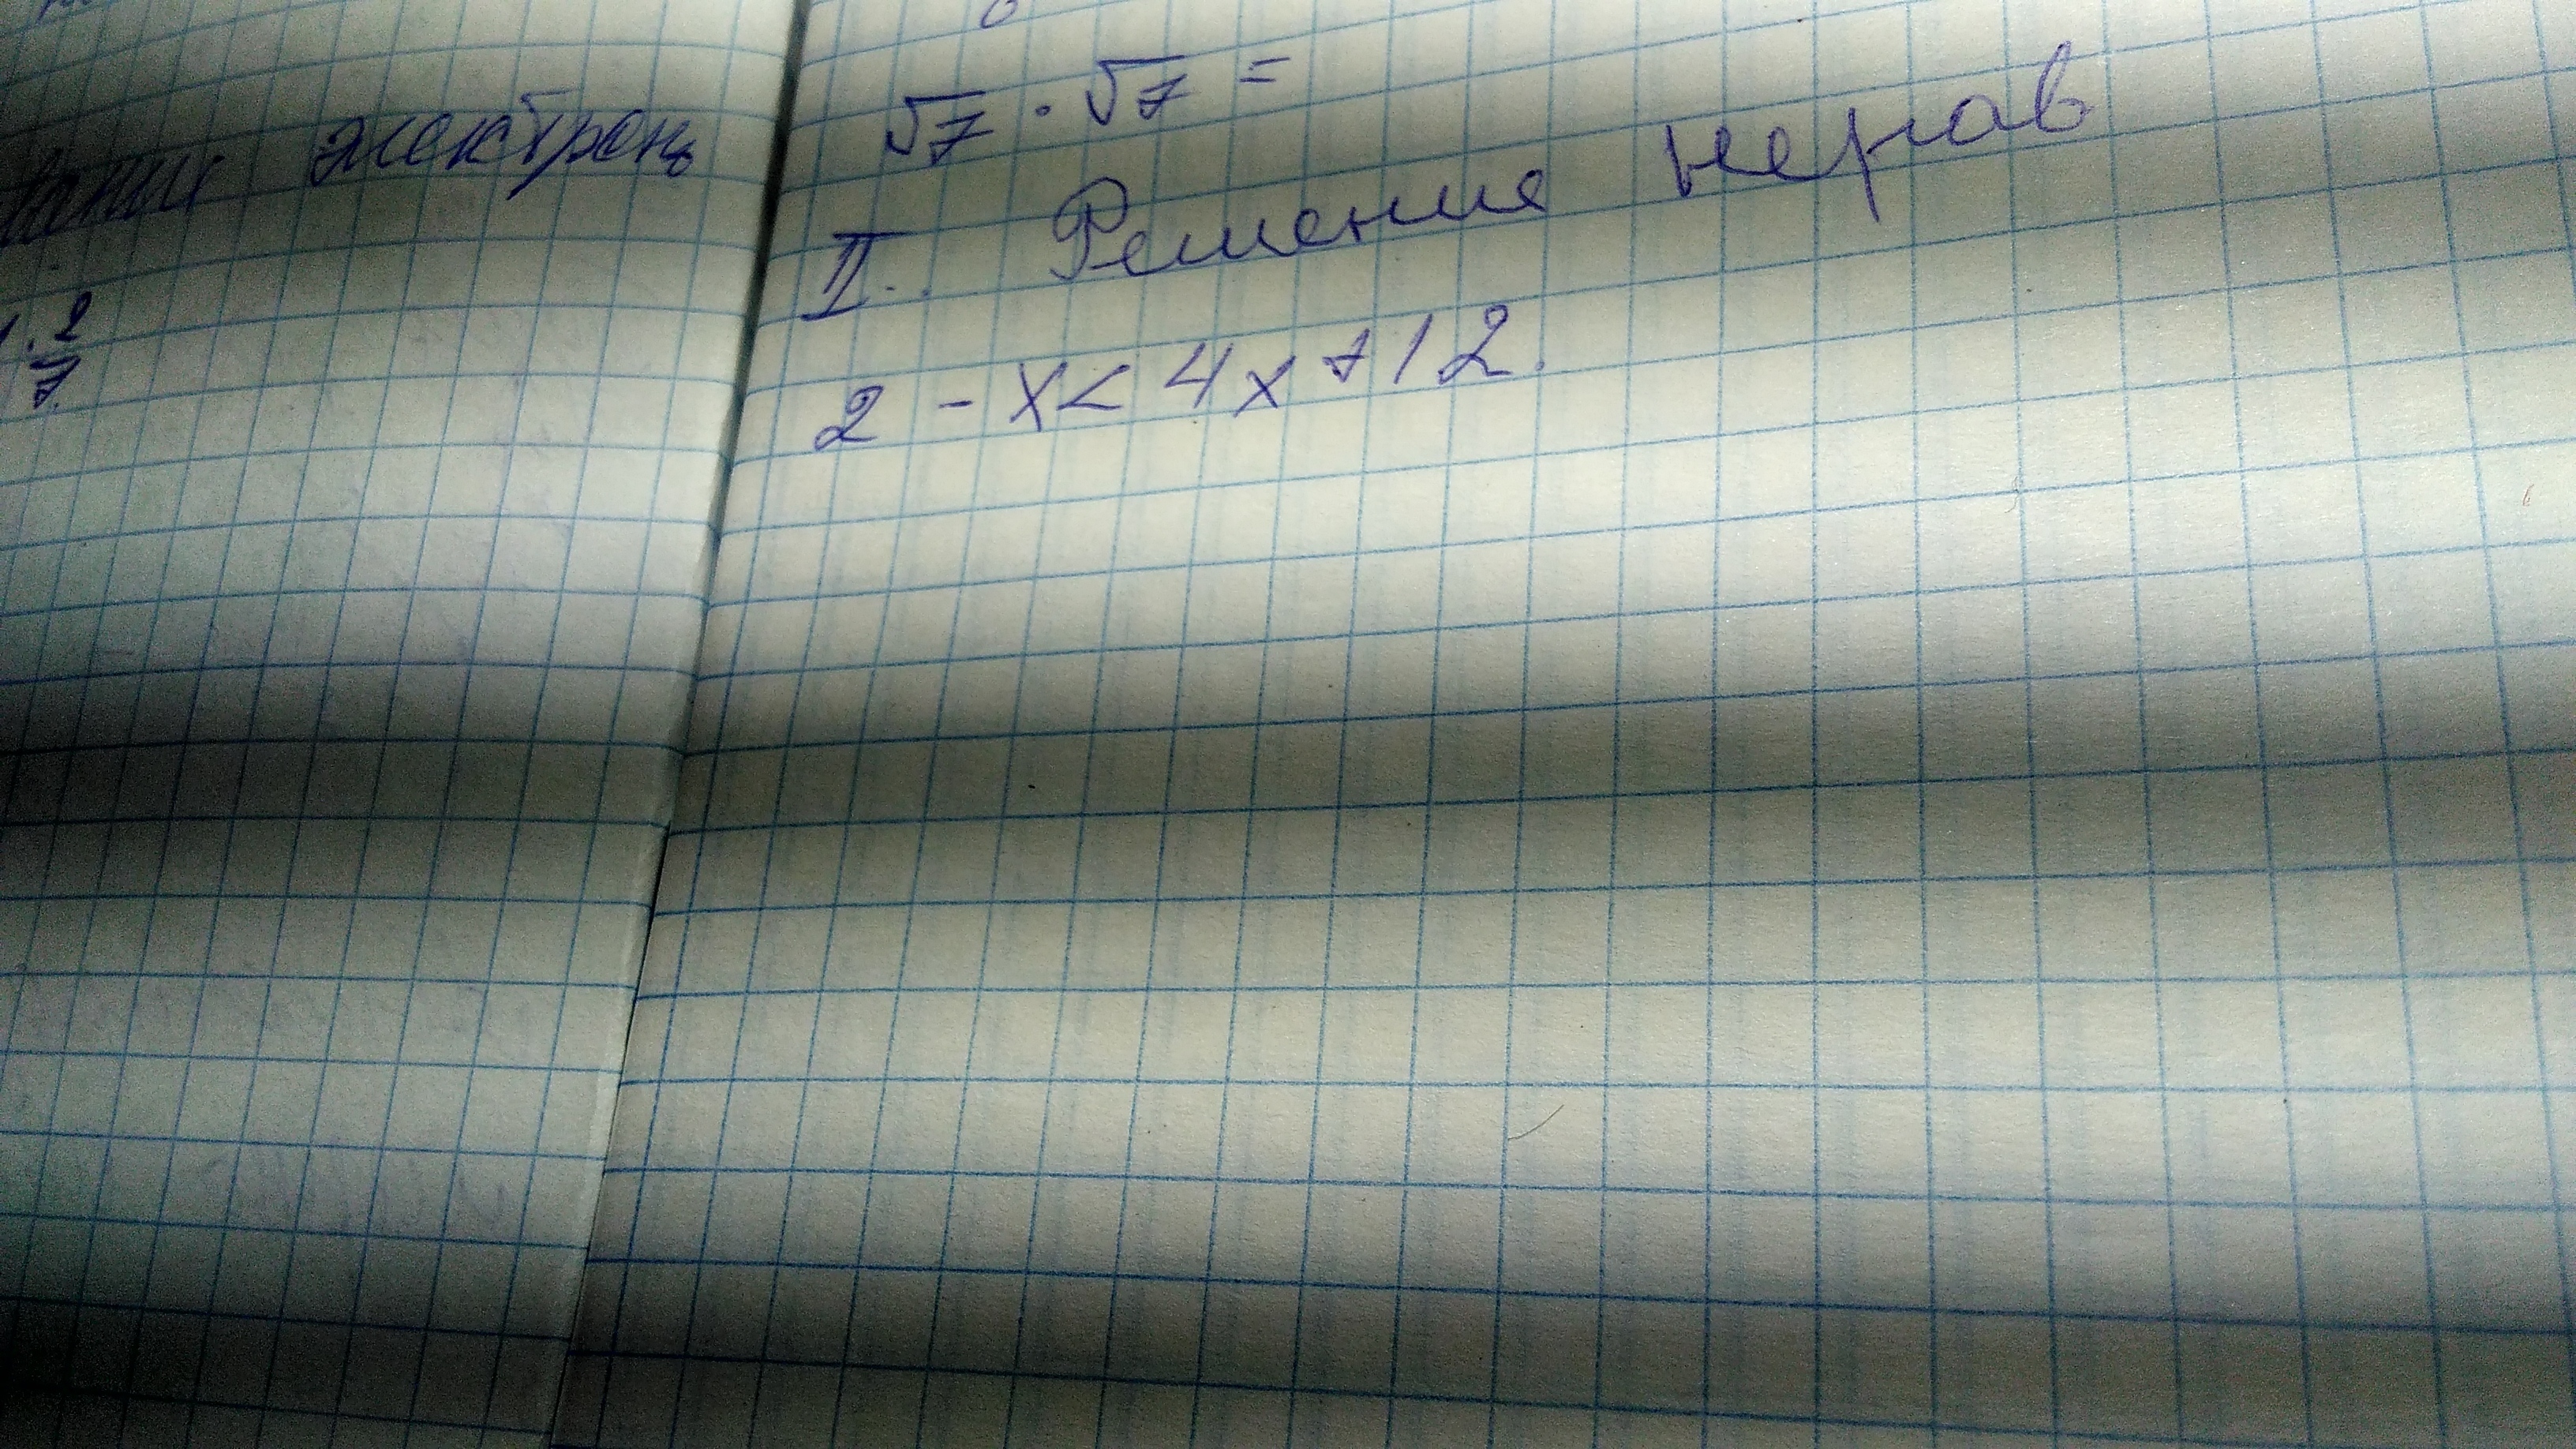 электронь
√7 · √7 =
II. Решение нерав
2 - x < 4x + 12.